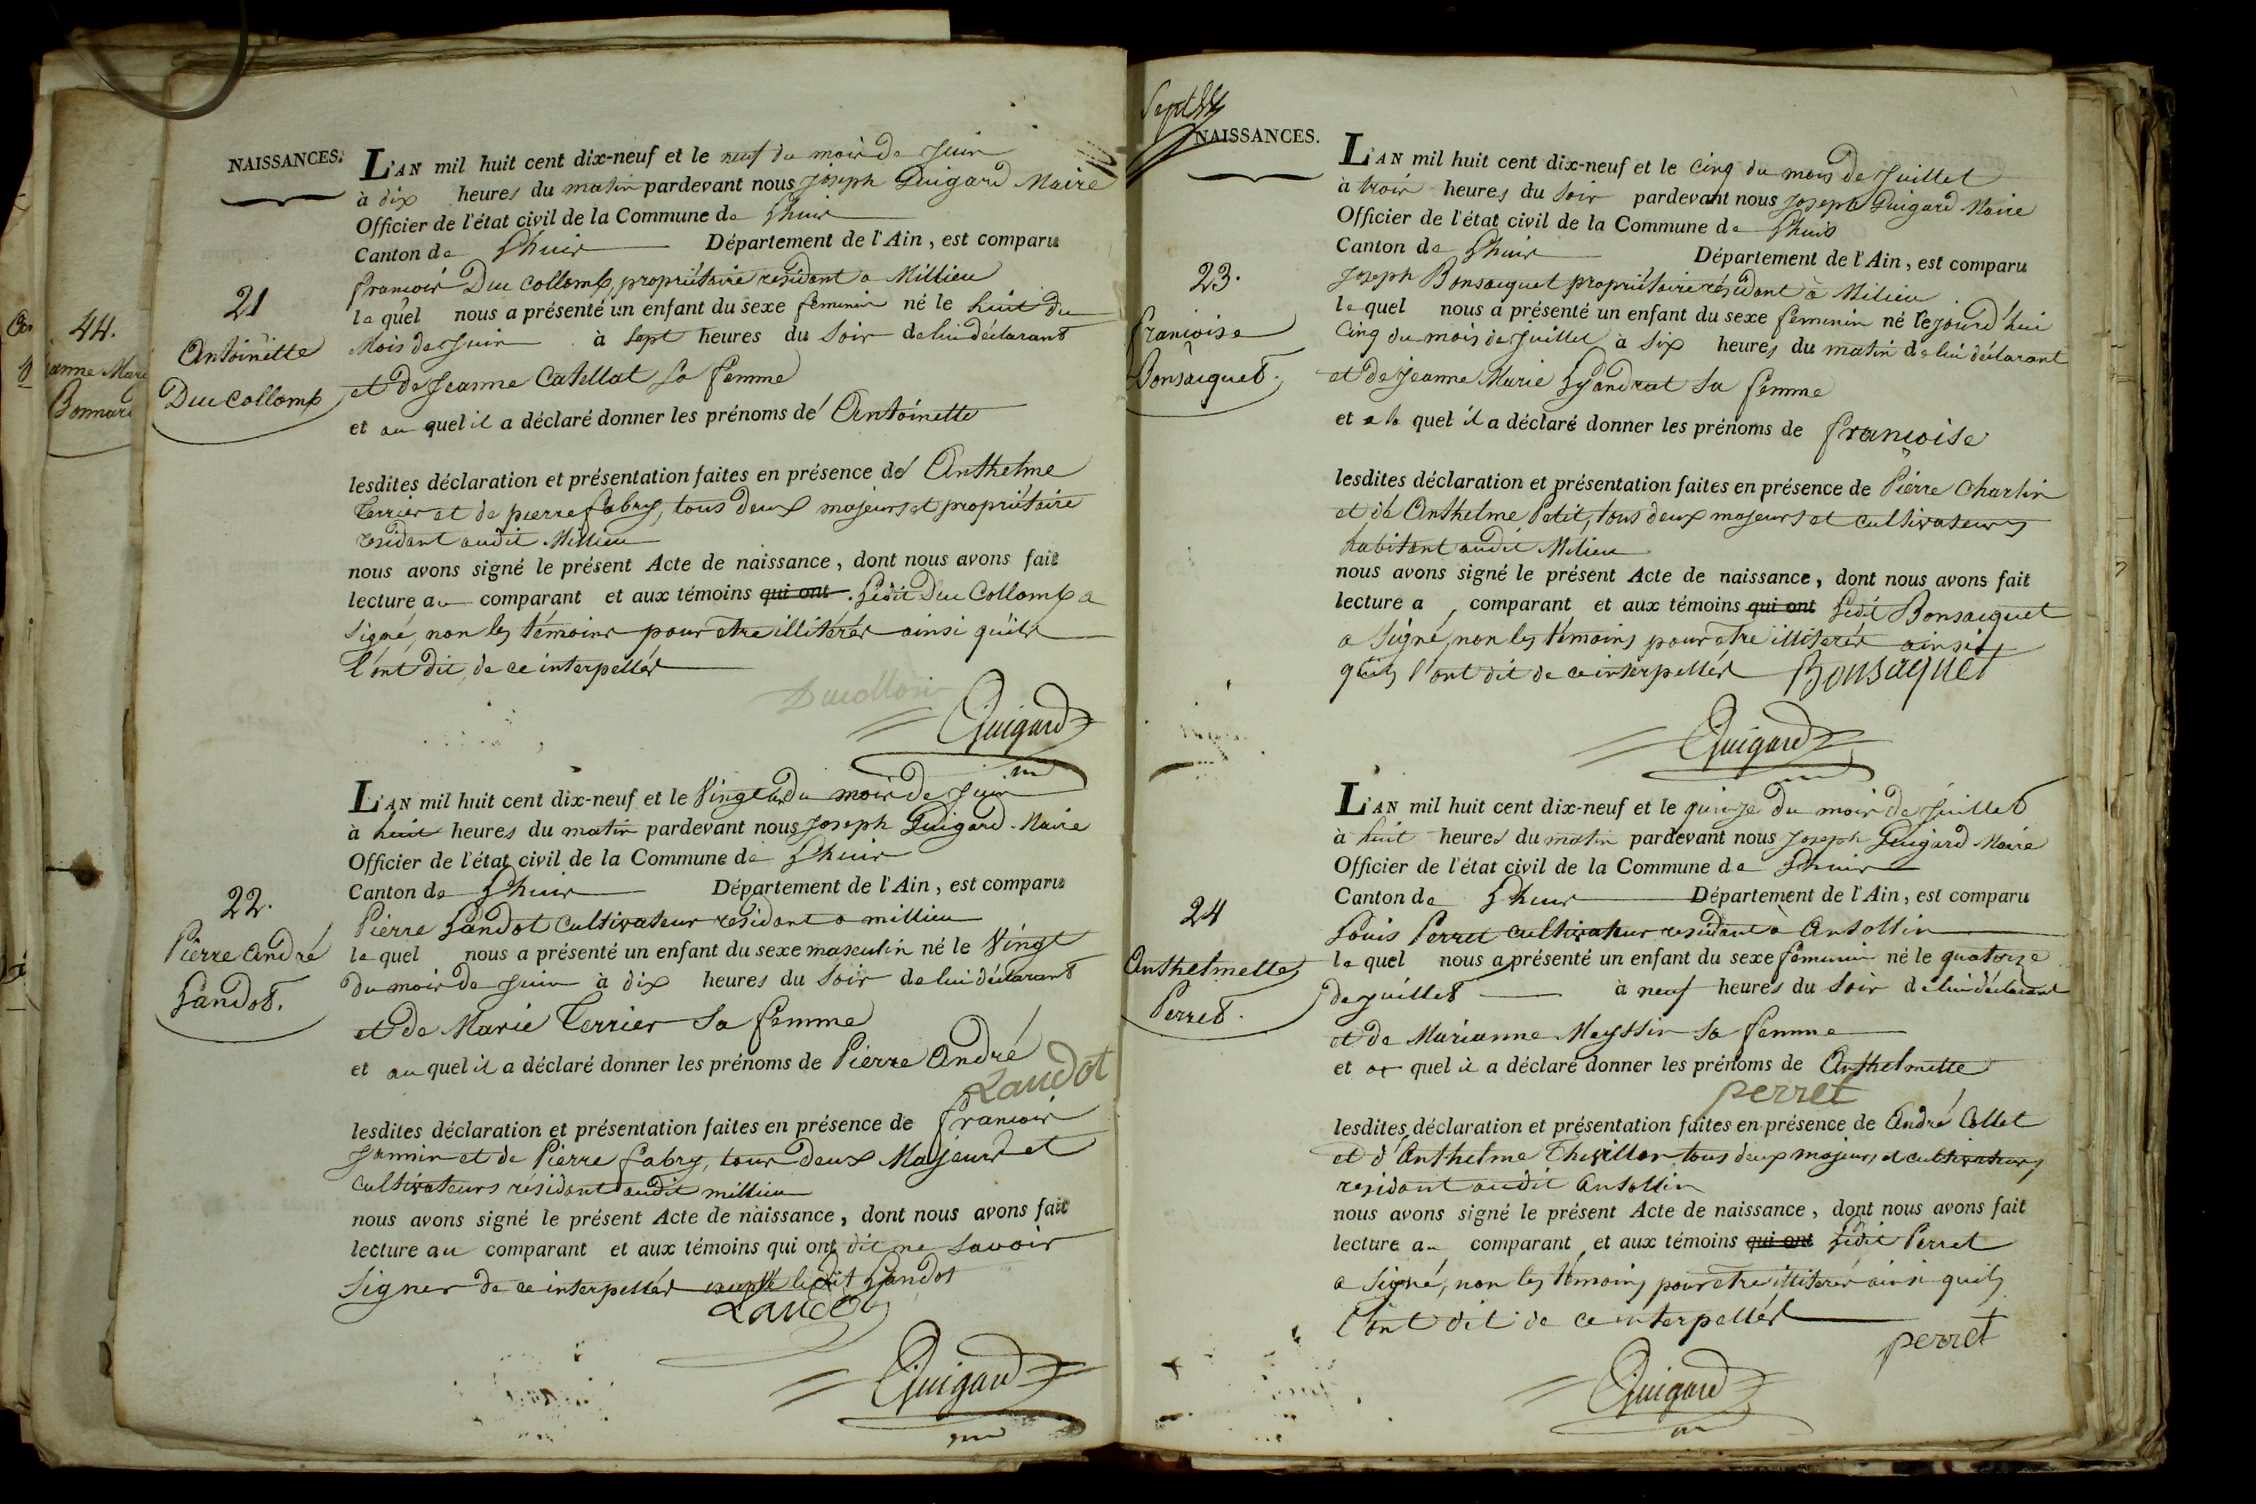 44.
anne Mari
Bonnard
NAISSANCES.
21
Antoinette
Duc Collomb
L'AN mil huit cent dix-neuf et le neuf du mois de Juin
à dix heures du matin pardevant nous Joseph Guigard Maire
Officier de l'état civil de la Commune de Lhuis
Canton de Lhuis Département de l'Ain, est comparu
francois Duc Collomb, propriétaire residant a Millieu
lequel nous a présenté un enfant du sexe feminin né le huit du
Mois de Juin à Sept heures du Soir de lui déclarant
et de Jeanne Catellat Sa femme
et au quel il a déclaré donner les prénoms de Antoinette
lesdites déclaration et présentation faites en présence de Anthelme
Terrier et de pierre fabry, tous deux majeurs et propriétaire
résidant audit Millieu
nous avons signé le présent Acte de naissance, dont nous avons fait
lecture au comparant et aux témoins qui ont. Ledit Duc Collomb a
Signé, non les témoins pour etre illitérés ainsi qu'ils
l'ont dit de ce interpellés
Guigard
22.
Pierre André
Landot.
L'AN mil huit cent dix-neuf et le Vingt un du mois de Juin
à huit heures du matin pardevant nous Joseph Guigard Maire
Officier de l'état civil de la Commune de Lhuis
Canton de Lhuis Département de l'Ain, est comparu
Pierre Landot Cultivateur residant a millieu
lequel nous a présenté un enfant du sexe masculin né le Vingt
du mois de Juin à dix heures du Soir de lui déclarant
et de Marie Terrier Sa femme
et au quel il a déclaré donner les prénoms de Pierre André
Landot
lesdites déclaration et présentation faites en présence de francois
Jannin et de Pierre fabry, tous deux Majeurs et
Cultivateurs résidant audit millieu
nous avons signé le présent Acte de naissance, dont nous avons fait
lecture au comparant et aux témoins qui ont dit ne Savoir
Signer de ce interpellés excepté ledit Landot
Landot
Guigard
Sept
NAISSANCES.
23.
francoise
Bonsacquet.
L'AN mil huit cent dix-neuf et le Cinq du mois de Juillet
à trois heures du Soir pardevant nous Joseph Guigard Maire
Officier de l'état civil de la Commune de Lhuis
Canton de Lhuis Département de l'Ain, est comparu
Joseph Bonsacquet propriétaire résidant à Milieu
lequel nous a présenté un enfant du sexe feminin né le jourd'hui
Cinq du mois de Juillet à Six heures du matin de lui déclarant
et de Jeanne Marie Lyandrat Sa femme
et a la quel il a déclaré donner les prénoms de francoise
lesdites déclaration et présentation faites en présence de Pierre Charlin
et de Anthelme Petit, tous deux majeurs et cultivateurs
habitant audit Milieu
nous avons signé le présent Acte de naissance, dont nous avons fait
lecture a comparant et aux témoins qui ont Ledit Bonsacquet
a Signé, non les témoins pour etre illiterés ainsi
qu'ils l'ont dit de ce interpellés Bonsaquet
Guigard
24
Anthelmette
Perret.
L'AN mil huit cent dix-neuf et le quinze du mois de Juillet
à huit heures du matin pardevant nous Joseph Guigard Maire
Officier de l'état civil de la Commune de Lhuis
Canton de Lhuis Département de l'Ain, est comparu
Louis Perret Cultivateur residant à Ansollin
lequel nous a présenté un enfant du sexe feminin né le quatorze
de Juillet à neuf heures du Soir de lui déclarant
et de Marianne Meyssin Sa femme
et au quel il a déclaré donner les prénoms de Anthelmette
perret
lesdites déclaration et présentation faites en présence de André Collet
et d'Anthelme Thevillon tous deux majeurs et cultivateurs
residant audit Ansollin
nous avons signé le présent Acte de naissance, dont nous avons fait
lecture au comparant, et aux témoins qui ont Ledit Perret
a Signé, non les témoins pour etre illiterés ainsi quils
l'ont dit de ce interpellés
perret
Guigard